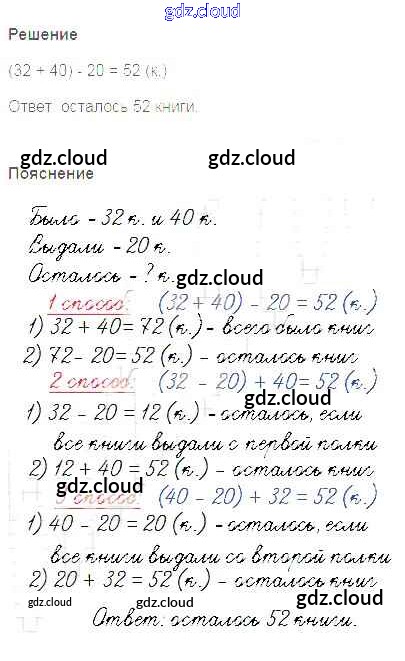 gdz.cloud
Решение
(32 + 40) - 20 = 52 (к.)
Ответ: осталось 52 книги.
gdz.cloud gdz.cloud
Пояснение
Было - 32 к. и 40 к.
Выдали - 20 к.
Осталось - ? к.
gdz.cloud
1 способ: (32 + 40) - 20 = 52 (к.)
1) 32 + 40 = 72 (к.) - всего было книг
2) 72 - 20 = 52 (к.) - осталось книг
2 способ: (32 - 20) + 40 = 52 (к.)
gdz.cloud
1) 32 - 20 = 12 (к.) - осталось, если
все книги выдали с первой полки
2) 12 + 40 = 52 (к.) - осталось книг
gdz.cloud
3 способ: (40 - 20) + 32 = 52 (к.)
1) 40 - 20 = 20 (к.) - осталось, если
все книги выдали со второй полки
gdz.cloud
2) 20 + 32 = 52 (к.) - осталось книг
gdz.cloud gdz.cloud gdz.cloud
Ответ: осталось 52 книги.